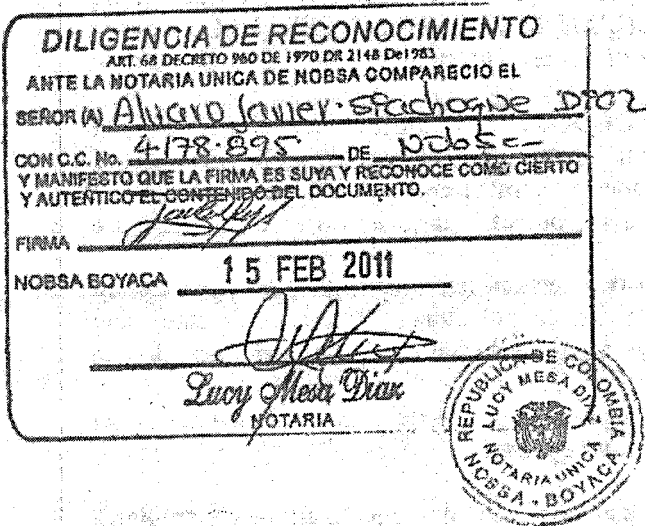 DILIGENCIA DE RECONOCIMIENTO
ART. 68 DECRETO 960 DE 1970 DR 2148 De1983
ANTE LA NOTARIA UNICA DE NOBSA COMPARECIO EL
SEÑOR (A) Alvaro Javier Siachoque Diaz
CON C.C. No. 4·178·895 DE Nobsa
Y MANIFESTO QUE LA FIRMA ES SUYA Y RECONOCE COMO CIERTO
Y AUTENTICO EL CONTENIDO DEL DOCUMENTO.
FIRMA
NOBSA BOYACA 15 FEB 2011
Lucy Mesa Diaz
NOTARIA
REPUBLICA DE COLOMBIA
LUCY MESA DIAZ
NOTARIA UNICA
NOBSA - BOYACA